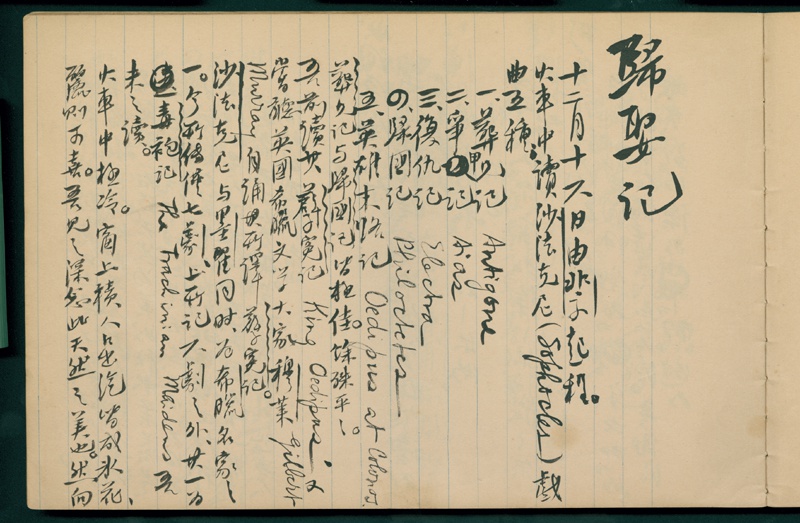 歸娶記
十二月十六日由北京起程。
火車中讀沙法克尼(Sophocles)戲
曲五種:
一、葬兄記 Antigone
二、爭甲記 Aias
三、復仇記 Electra
四、歸國記 Philoctetes
五、英雄末路記 Oedipus at Colonos.
葬兄記與歸國記皆極佳。餘殊平平。
吾前讀其孽冤記 King Oedipus,又
嘗聽英國希臘文學大家穆萊 Gilbert
Murray 自誦其所譯孽冤記。
沙法克尼與墨翟同時,為希臘名家之
一。今所傳僅七劇、上所記六劇之外、其一為
毒袍記 The Trachinian Maidens 吾
未之讀。
火車中極冷。窗上積人口出汽皆成冰花、
麗則可喜。吾見之深念此天然之美也。然向